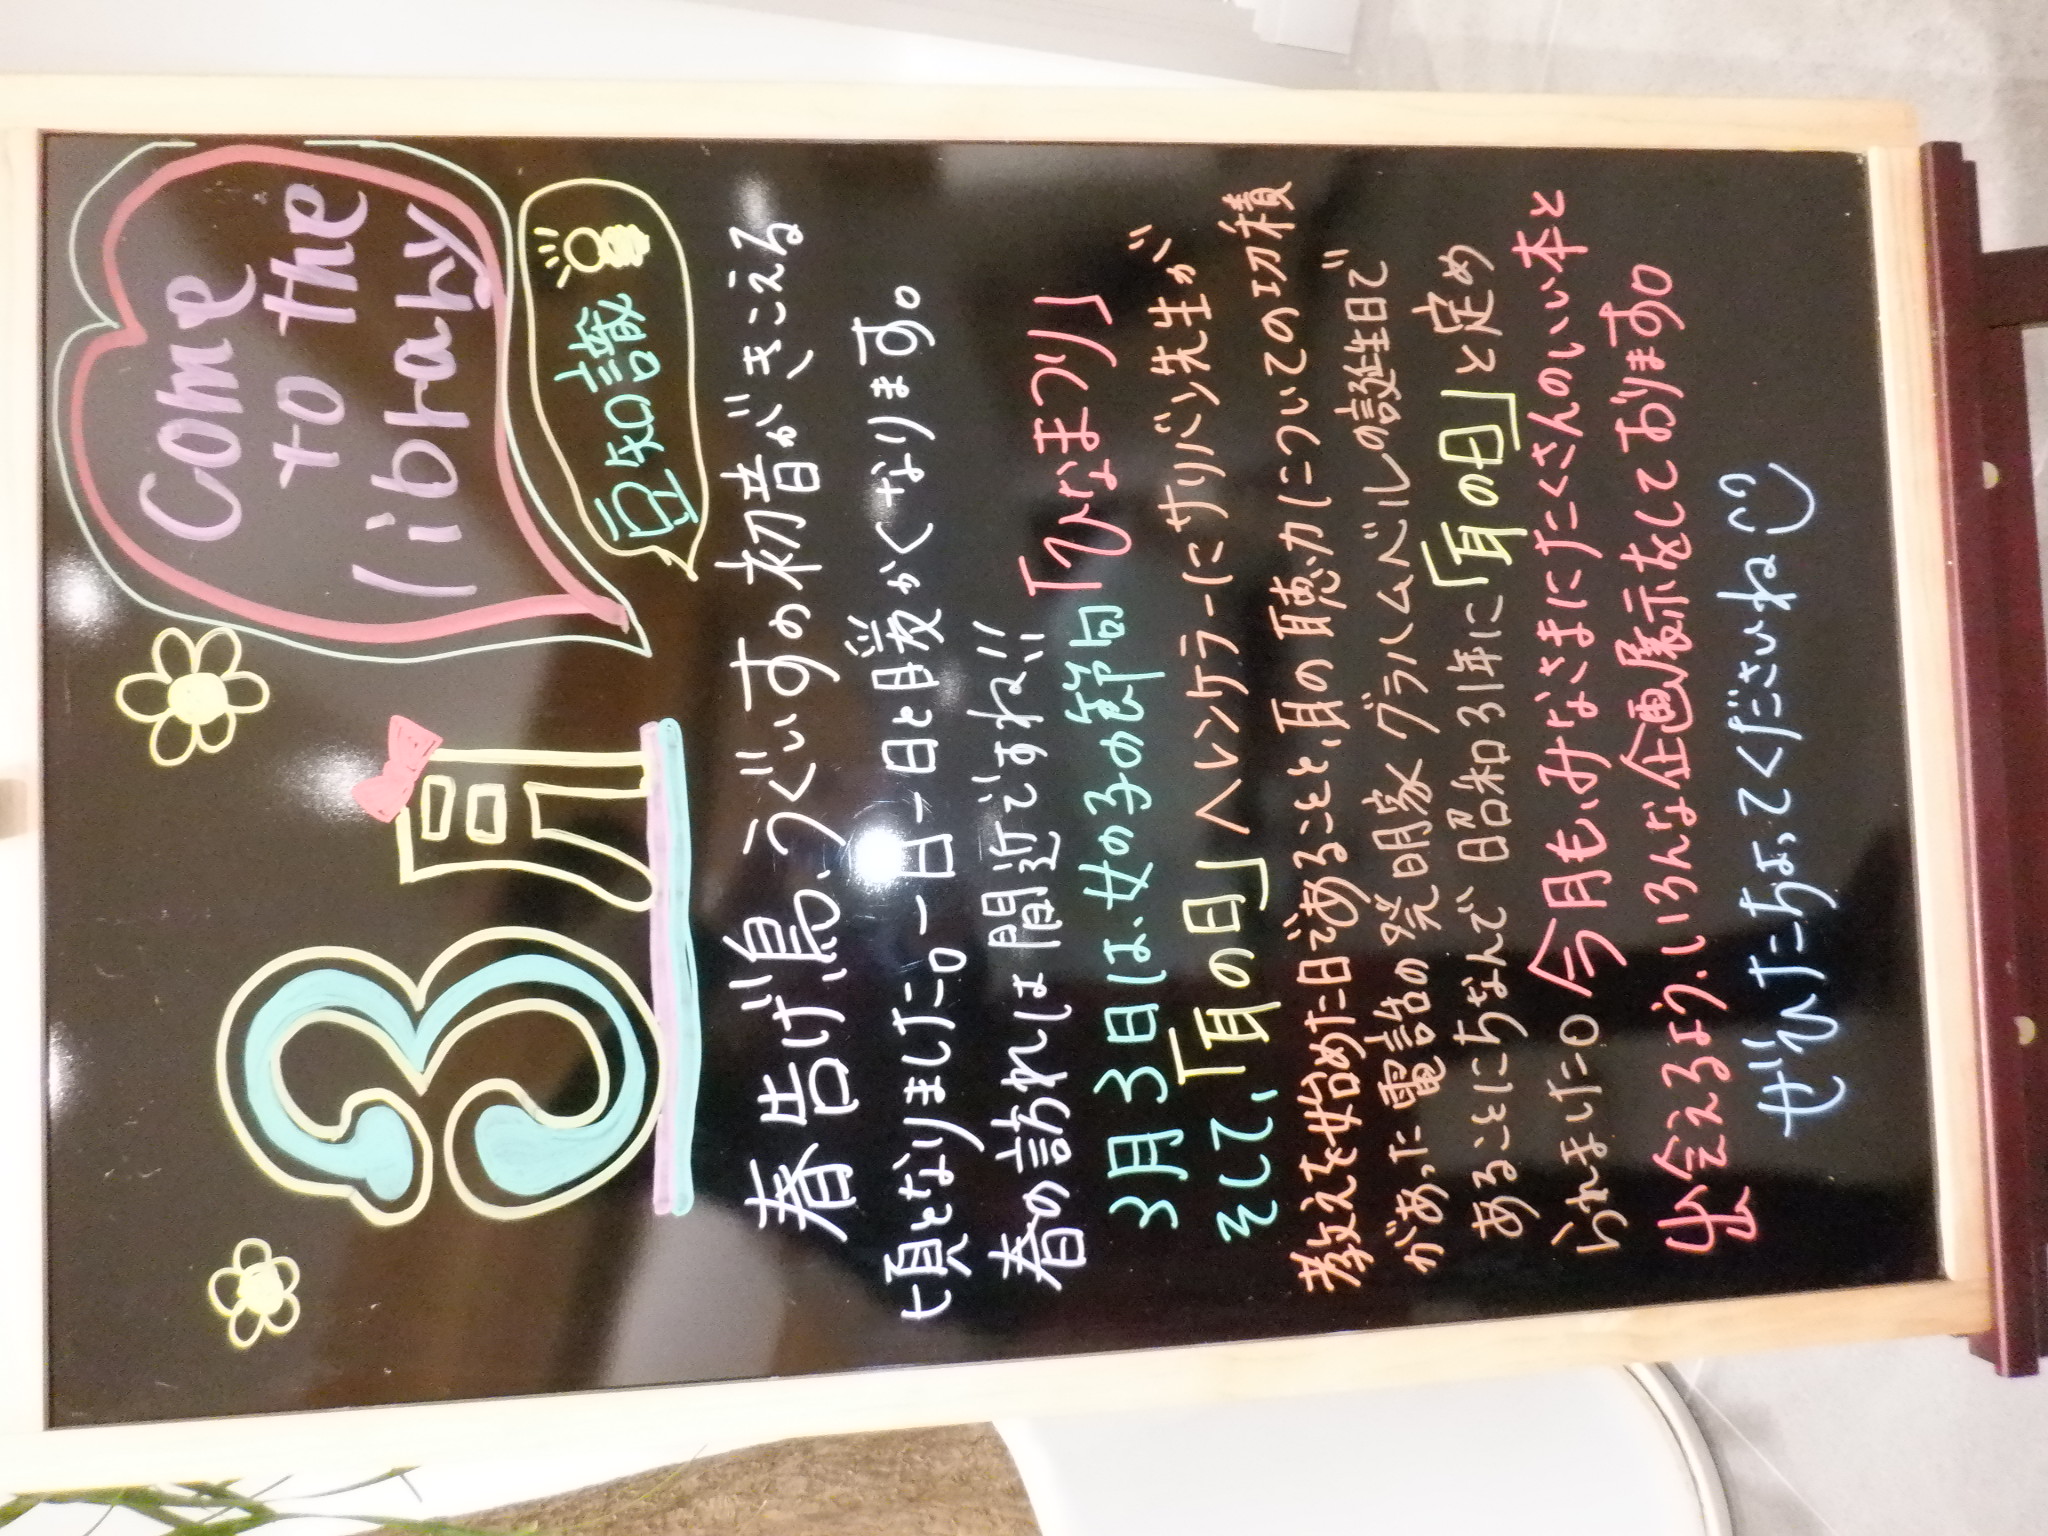 3月
Come
to the
library
豆知識
春告げ鳥、うぐいすの初音がきこえる
頃となりました。一日一日と暖かくなります。
春の訪れは間近ですね!!
3月3日は、女の子の節句「ひなまつり」
そして、「耳の日」ヘレンケラーにサリバン先生が
教えを始めた日であることと、耳の聴力についての功積
があった電話の発明家グラハムベルの誕生日で
あることにちなんで昭和31年に「耳の日」と定め
られました。今月も、みなさまにたくさんのいい本と
出会えるよう、いろんな企画展示をしております。
ぜひたちよってくださいね